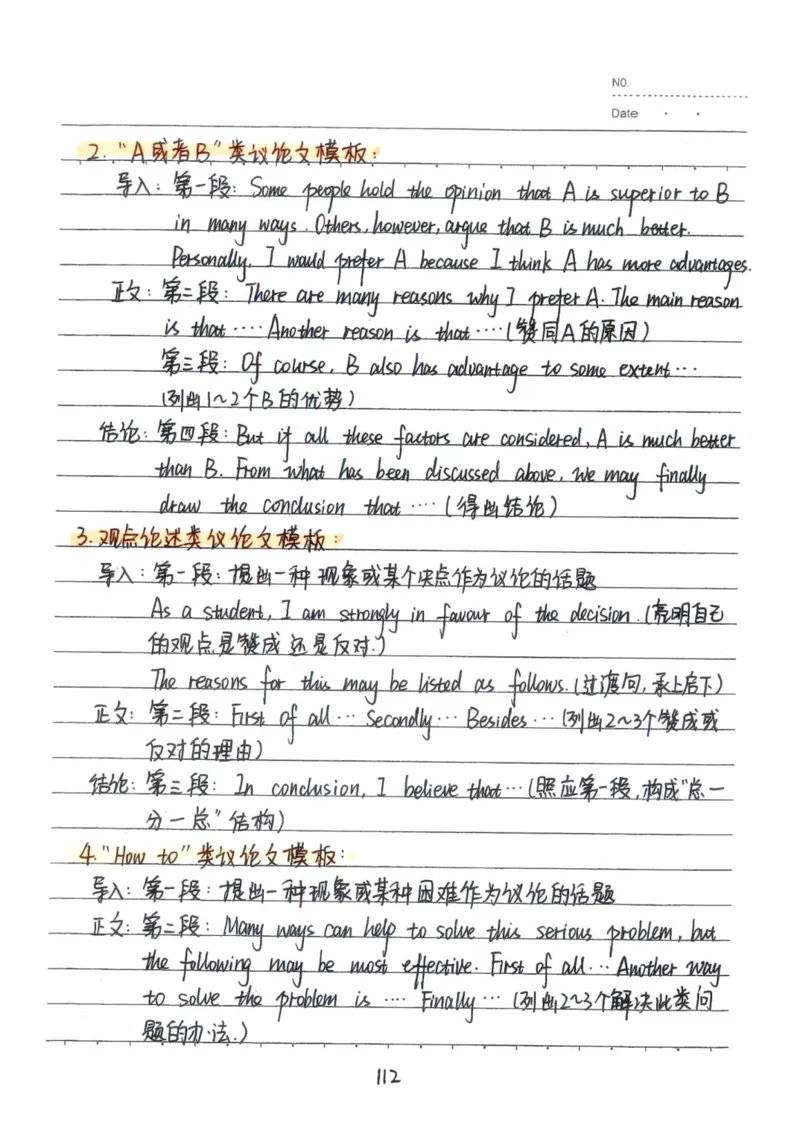 NO.
Date · ·
2. "A或者B"类议论文模板:
导入: 第一段: Some people hold the opinion that A is superior to B
in many ways. Others, however, argue that B is much better.
Personally, I would prefer A because I think A has more advantages.
正文: 第二段: There are many reasons why I prefer A. The main reason
is that ···· Another reason is that ···· (赞同A的原因)
第三段: Of course, B also has advantage to some extent ···
(列出1~2个B的优势)
结论: 第四段: But if all these factors are considered, A is much better
than B. From what has been discussed above, we may finally
draw the conclusion that ···· (得出结论)
3. 观点论述类议论文模板:
导入: 第一段: 提出一种现象或某个决点作为议论的话题
As a student, I am strongly in favour of the decision. (亮明自己
的观点是赞成还是反对.)
The reasons for this may be listed as follows. (过渡句, 承上启下)
正文: 第二段: First of all ··· Secondly ··· Besides ··· (列出2~3个赞成或
反对的理由)
结论: 第三段: In conclusion, I believe that ··· (照应第一段, 构成"总一
分一总"结构)
4. "How to"类议论文模板:
导入: 第一段: 提出一种现象或某种困难作为议论的话题
正文: 第二段: Many ways can help to solve this serious problem, but
the following may be most effective. First of all ··· Another way
to solve the problem is ···· Finally ··· (列出2~3个解决此类问
题的办法.)
112